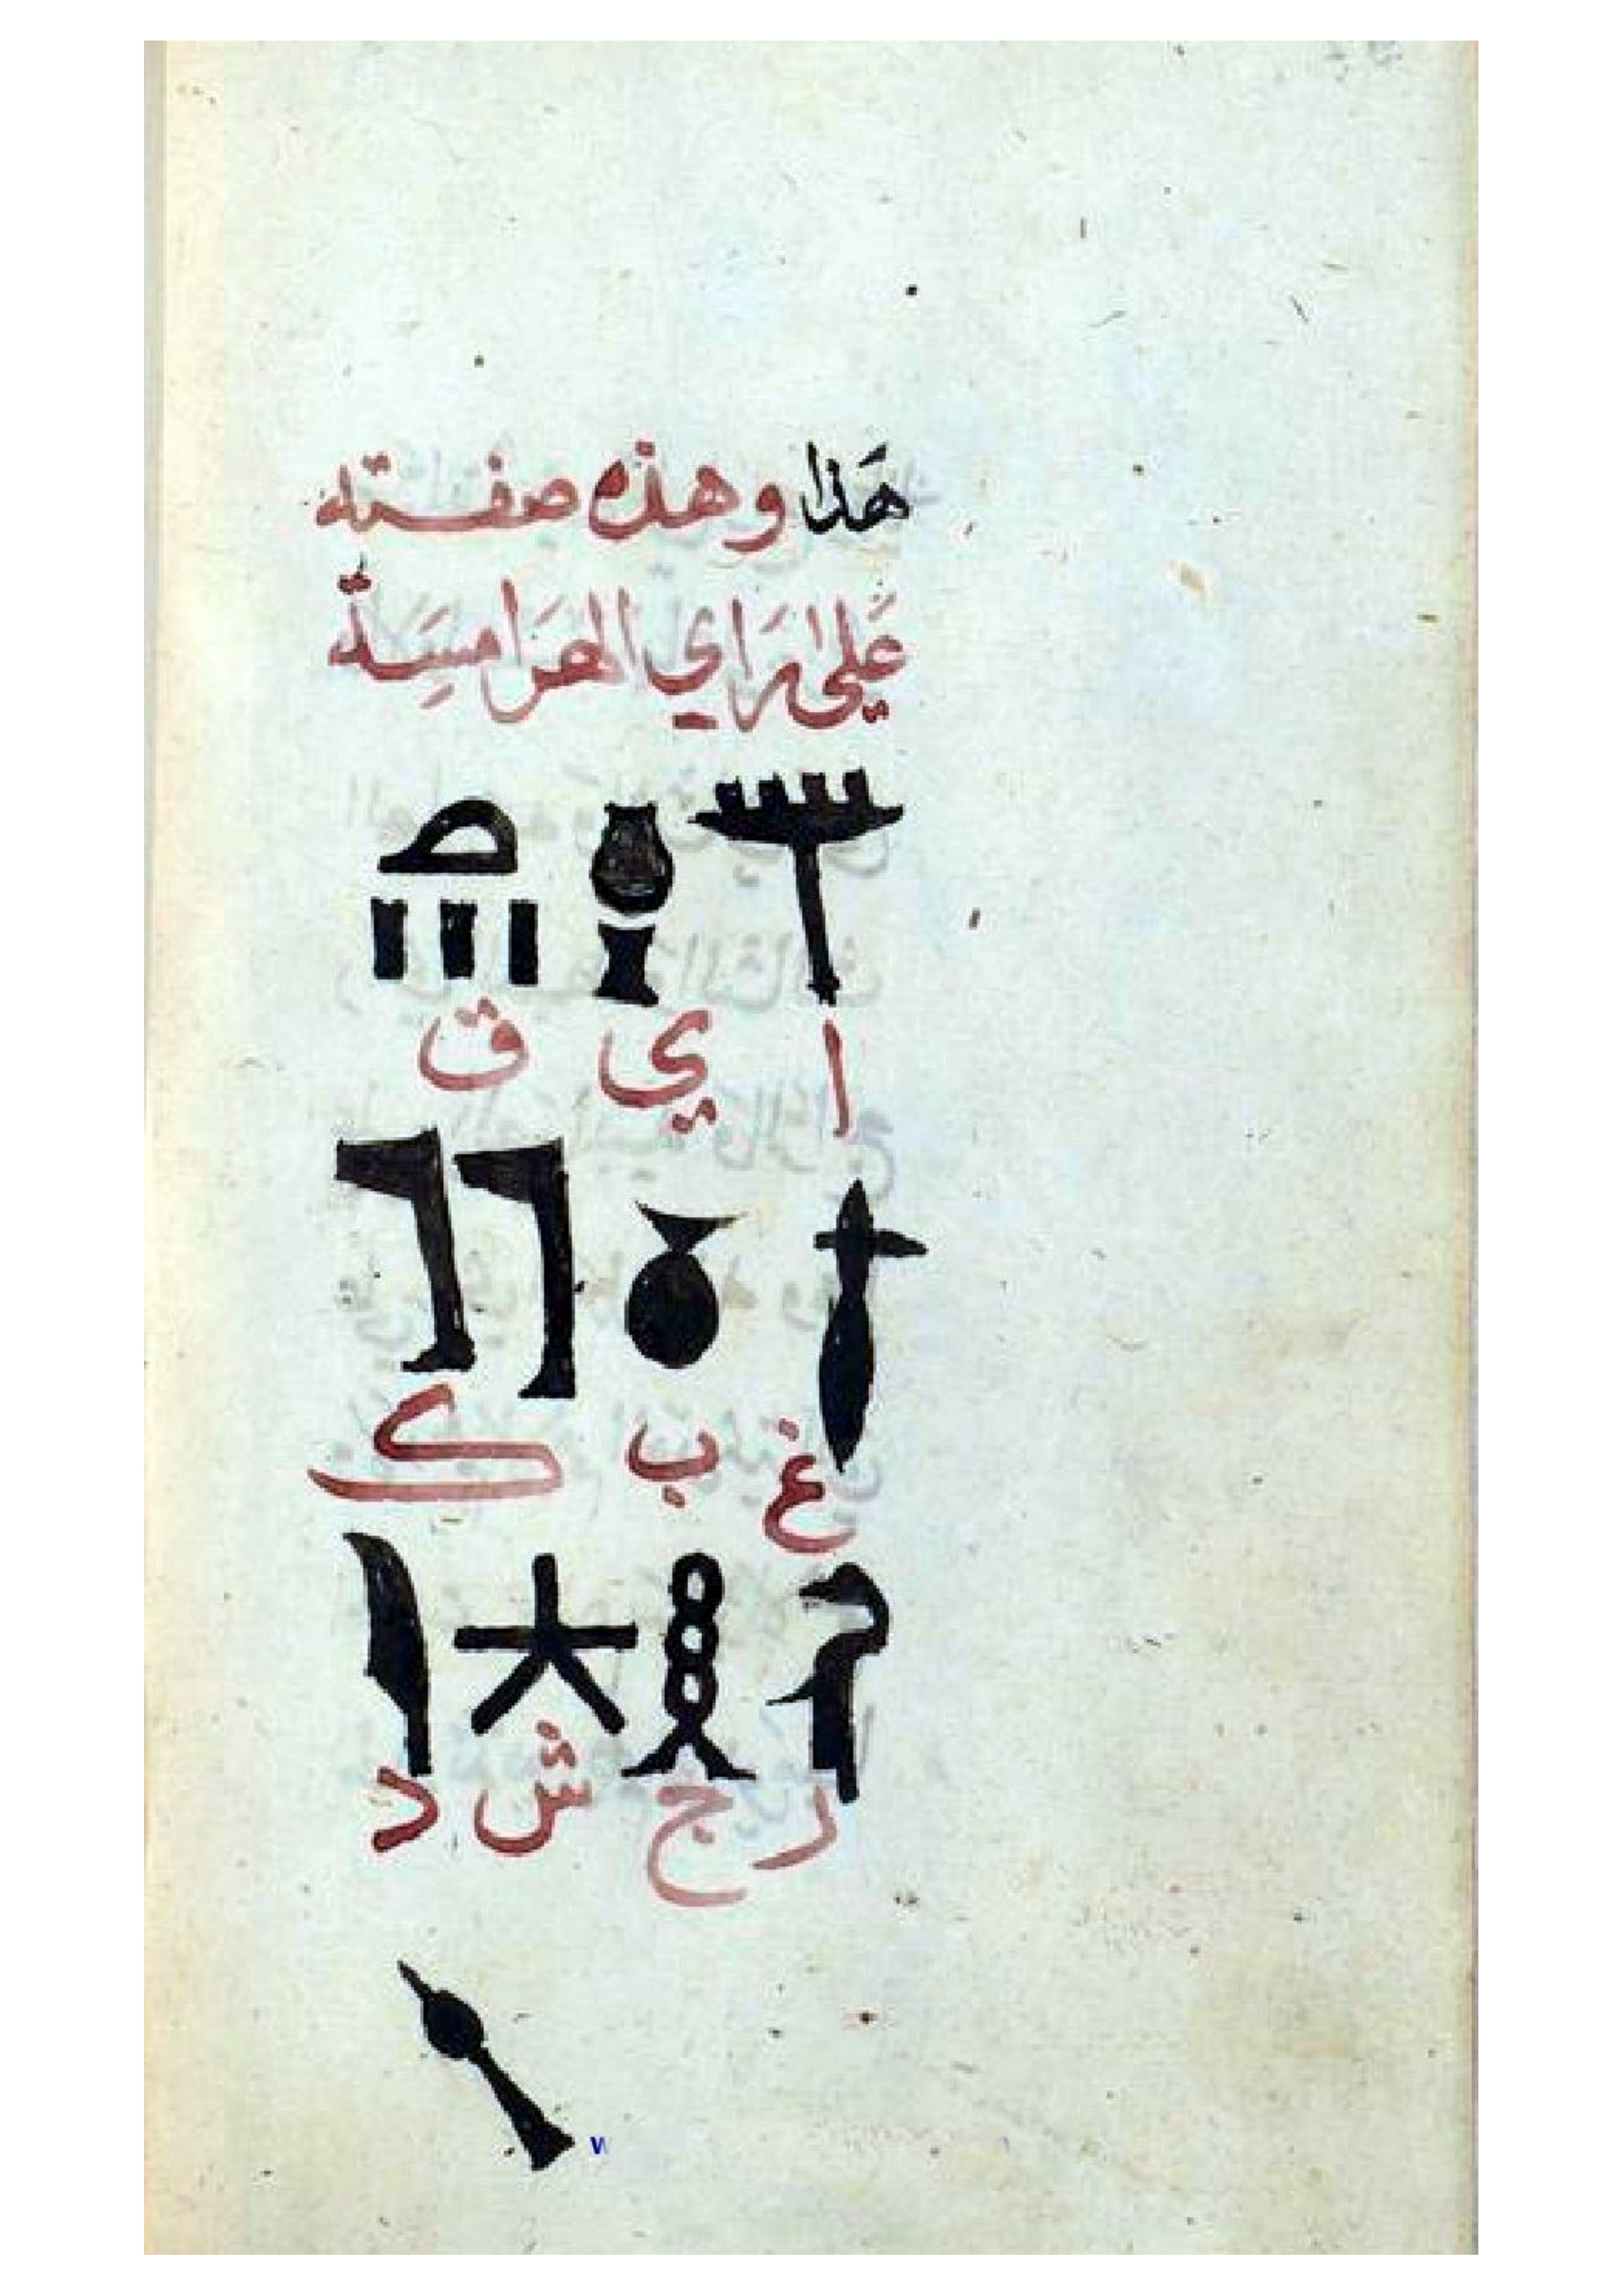 هَذَا وهذه صفته
عَلَى رَاي الهَرَامِسَة
ا ي ق
غ ب ك
ر ج ش د
w